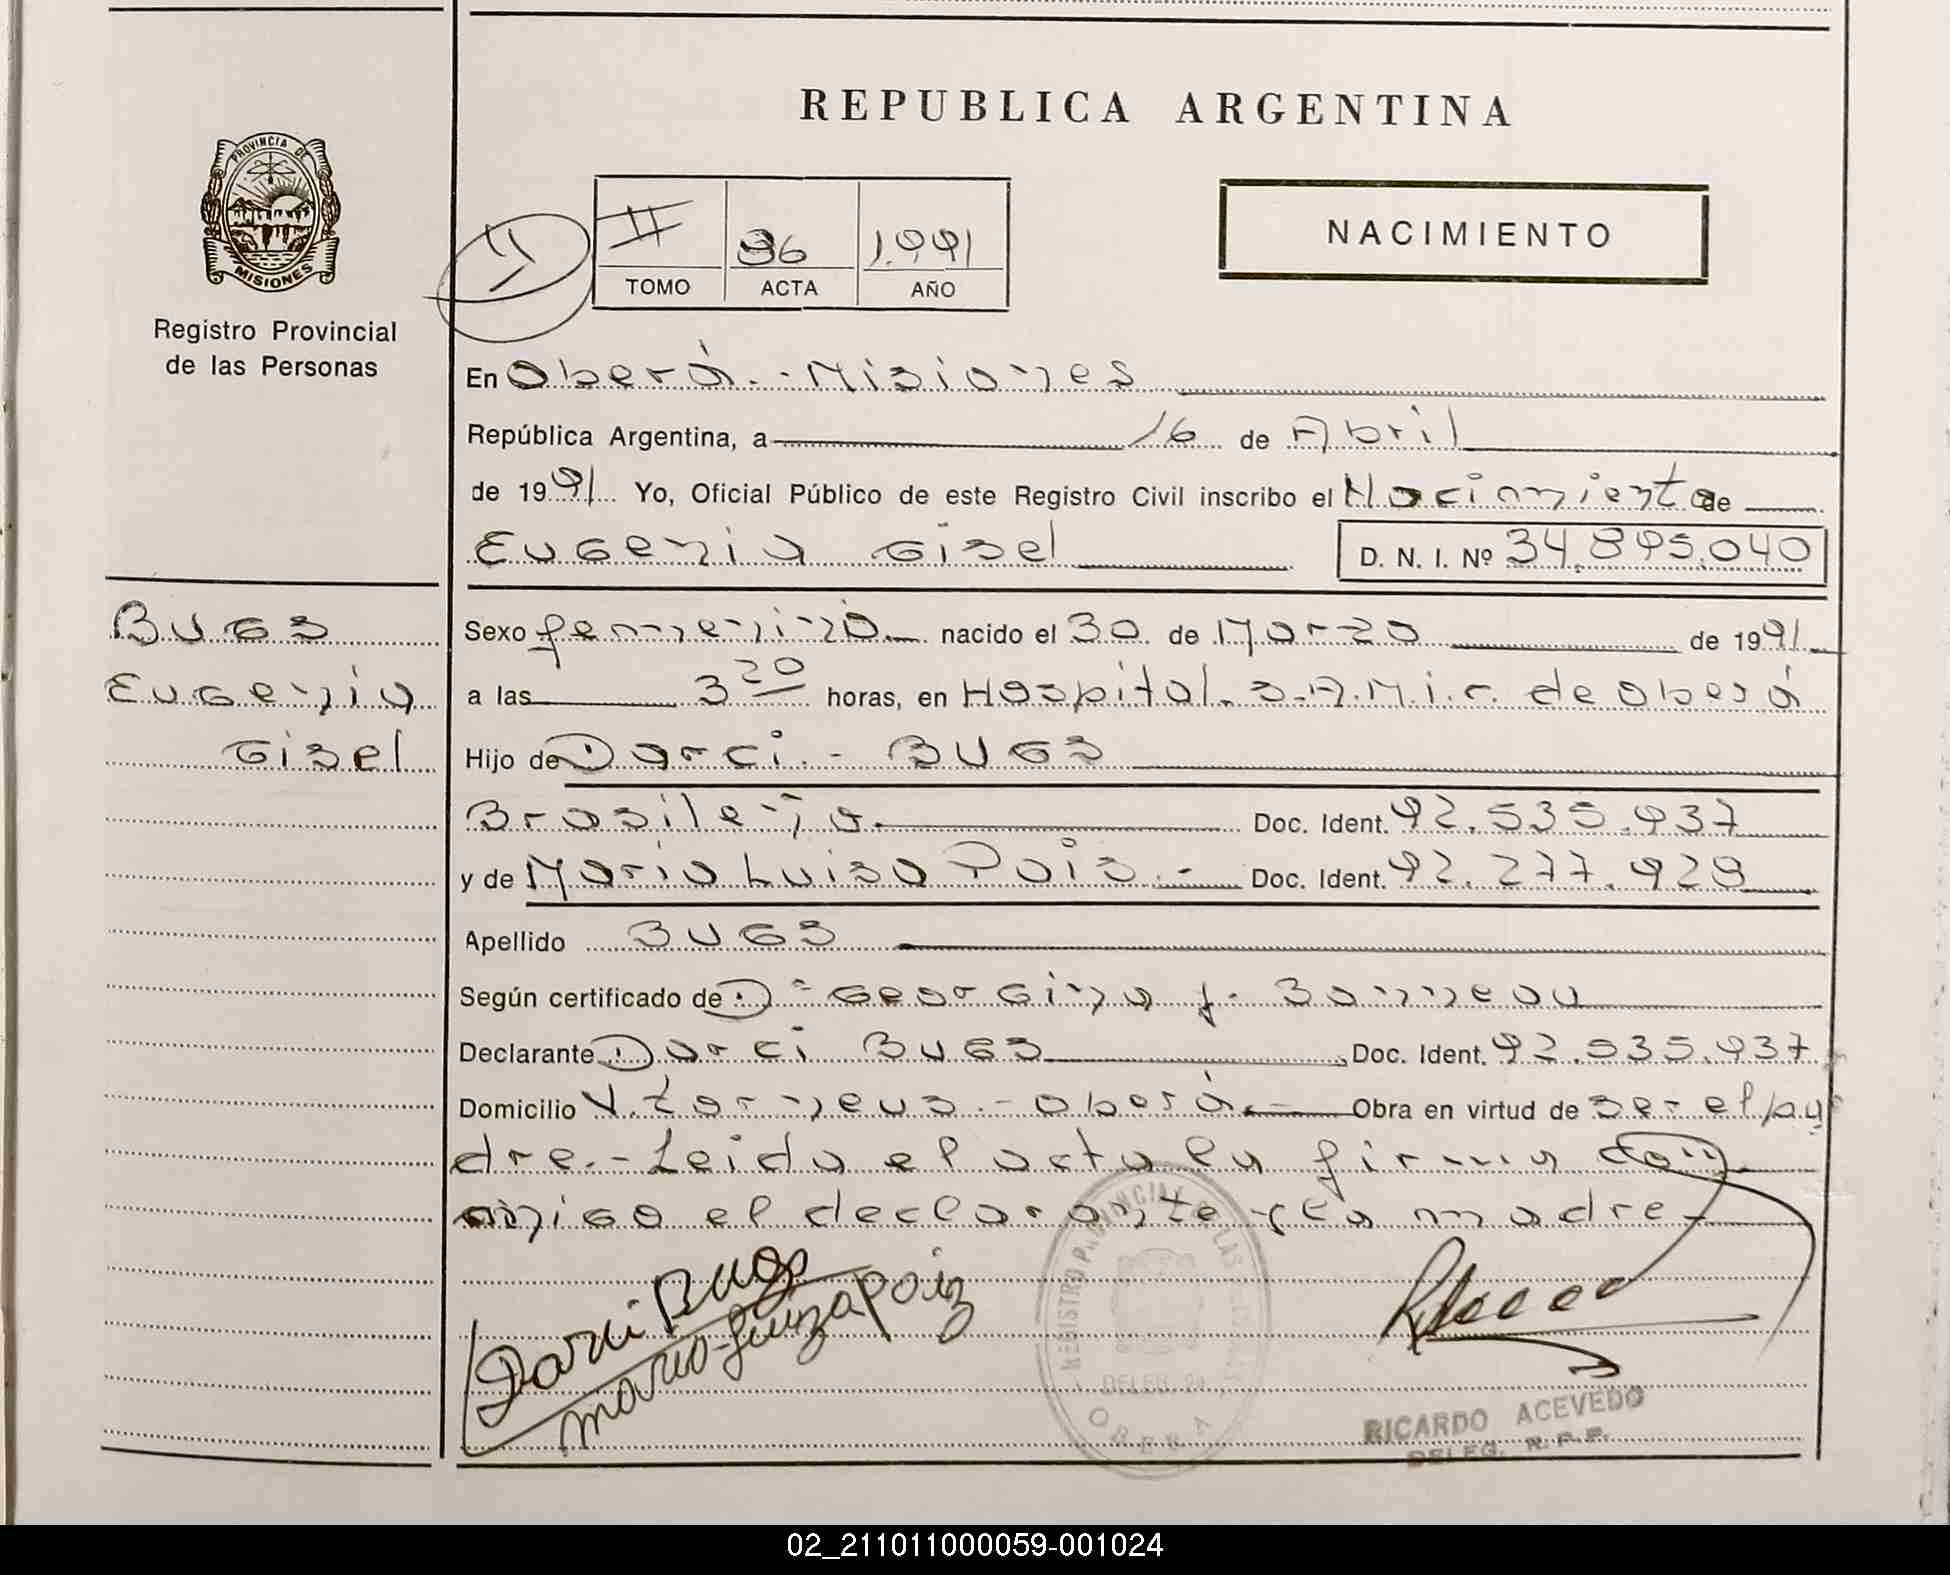 REPUBLICA ARGENTINA
PROVINCIA DE
MISIONES
Registro Provincial
de las Personas
II 96 1.991
TOMO ACTA AÑO
NACIMIENTO
En Oberá.-Misiones
República Argentina, a 16 de Abril
de 1991 Yo, Oficial Público de este Registro Civil inscribo el Nacimiento de
Eugenia Gisel D. N. I. Nº 34.895.040
BUGS
Eugenia
Gisel
Sexo femenino nacido el 30 de Marzo de 1991
a las 3 20 horas, en Hospital S.A.M.i.c. de Oberá
Hijo de Darci.- BUGS
Brasileña.- Doc. Ident. 92.535.937
y de Maria Luisa Pois.- Doc. Ident. 92.277.929
Apellido BUGS
Según certificado de Dª Georgina J. Bonneau
Declarante Darci BUGS Doc. Ident. 92.535.937
Domicilio V. Zorneus.-Oberá.- Obra en virtud de ser el pa
dre.-Leida el acta la firma con
migo el declarante y la madre.-
Darci Bugs
Maria Luiza Poiz
REGISTRO PROVINCIAL DE LAS
DELEG. 24
OBERA
RICARDO ACEVEDO
DELEG. R. P. P.
02_211011000059-001024